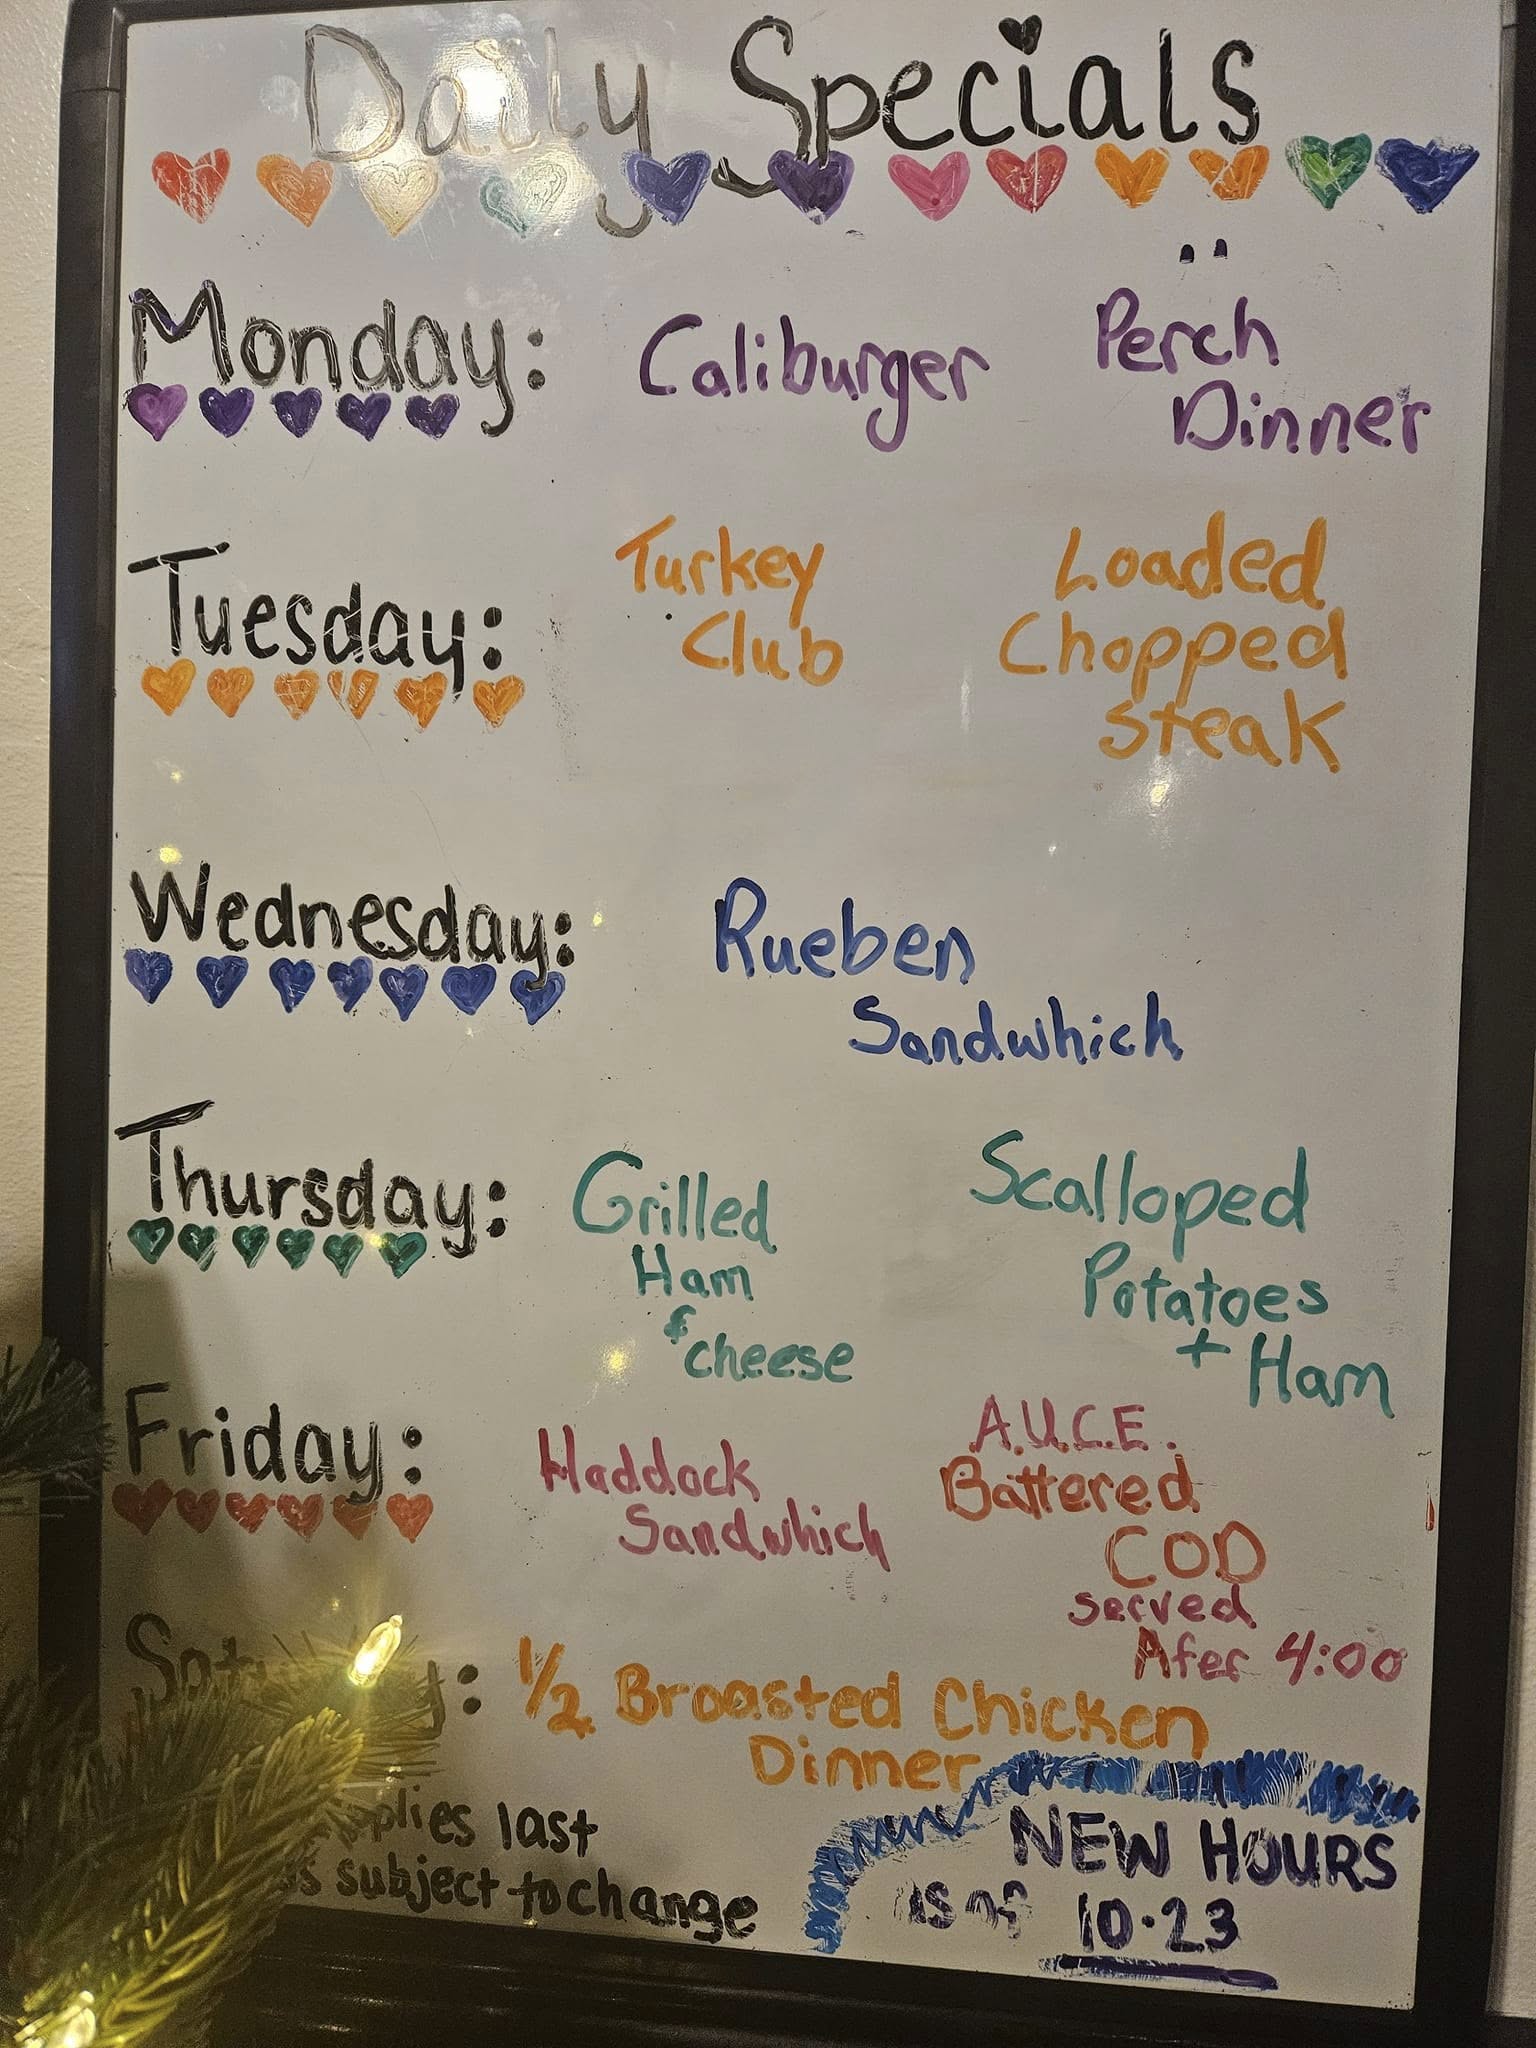 Daily Specials
Monday: Caliburger
Perch
Dinner
Tuesday:
Turkey
Club
Loaded
Chopped
Steak
Wednesday:
Rueben
Sandwhich
Thursday:
Grilled
Ham
& cheese
Scalloped
Potatoes
+ Ham
Friday:
Haddock
Sandwhich
A.U.C.E.
Battered
COD
served
Afer 4:00
1/2 Broasted Chicken
Dinner
last
subject to change
NEW HOURS
as of 10.23